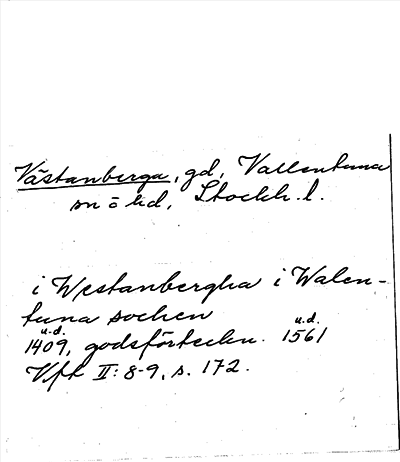 Västanberga, gd, Vallentuna
sn o hd, Stockh. l.
i Westanbergha i Walen-
tuna sochen
u.d. u.d.
1409, godsförteckn. 1561
Vft II: 8-9, s. 172.